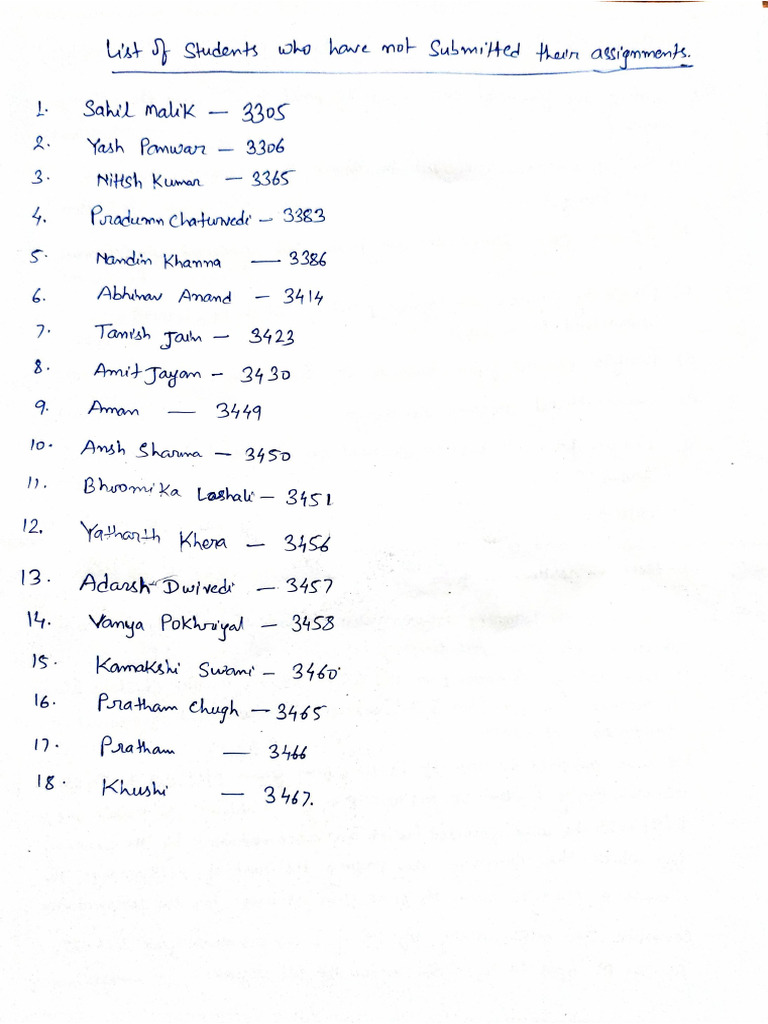 List of Students who have not Submitted their assignments.
1. Sahil Malik — 3305
2. Yash Panwar — 3306
3. Nitish Kumar — 3365
4. Pradumn Chaturvedi — 3383
5. Nandin Khanna — 3386
6. Abhinav Anand — 3414
7. Tanish Jain — 3423
8. Amit Jayan — 3430
9. Aman — 3449
10. Ansh Sharma — 3450
11. Bhoomika Loshali — 3451
12. Yatharth Khera — 3456
13. Adarsh Dwivedi — 3457
14. Vanya Pokhriyal — 3458
15. Kamakshi Swami — 3460
16. Pratham Chugh — 3465
17. Pratham — 3466
18. Khushi — 3467.